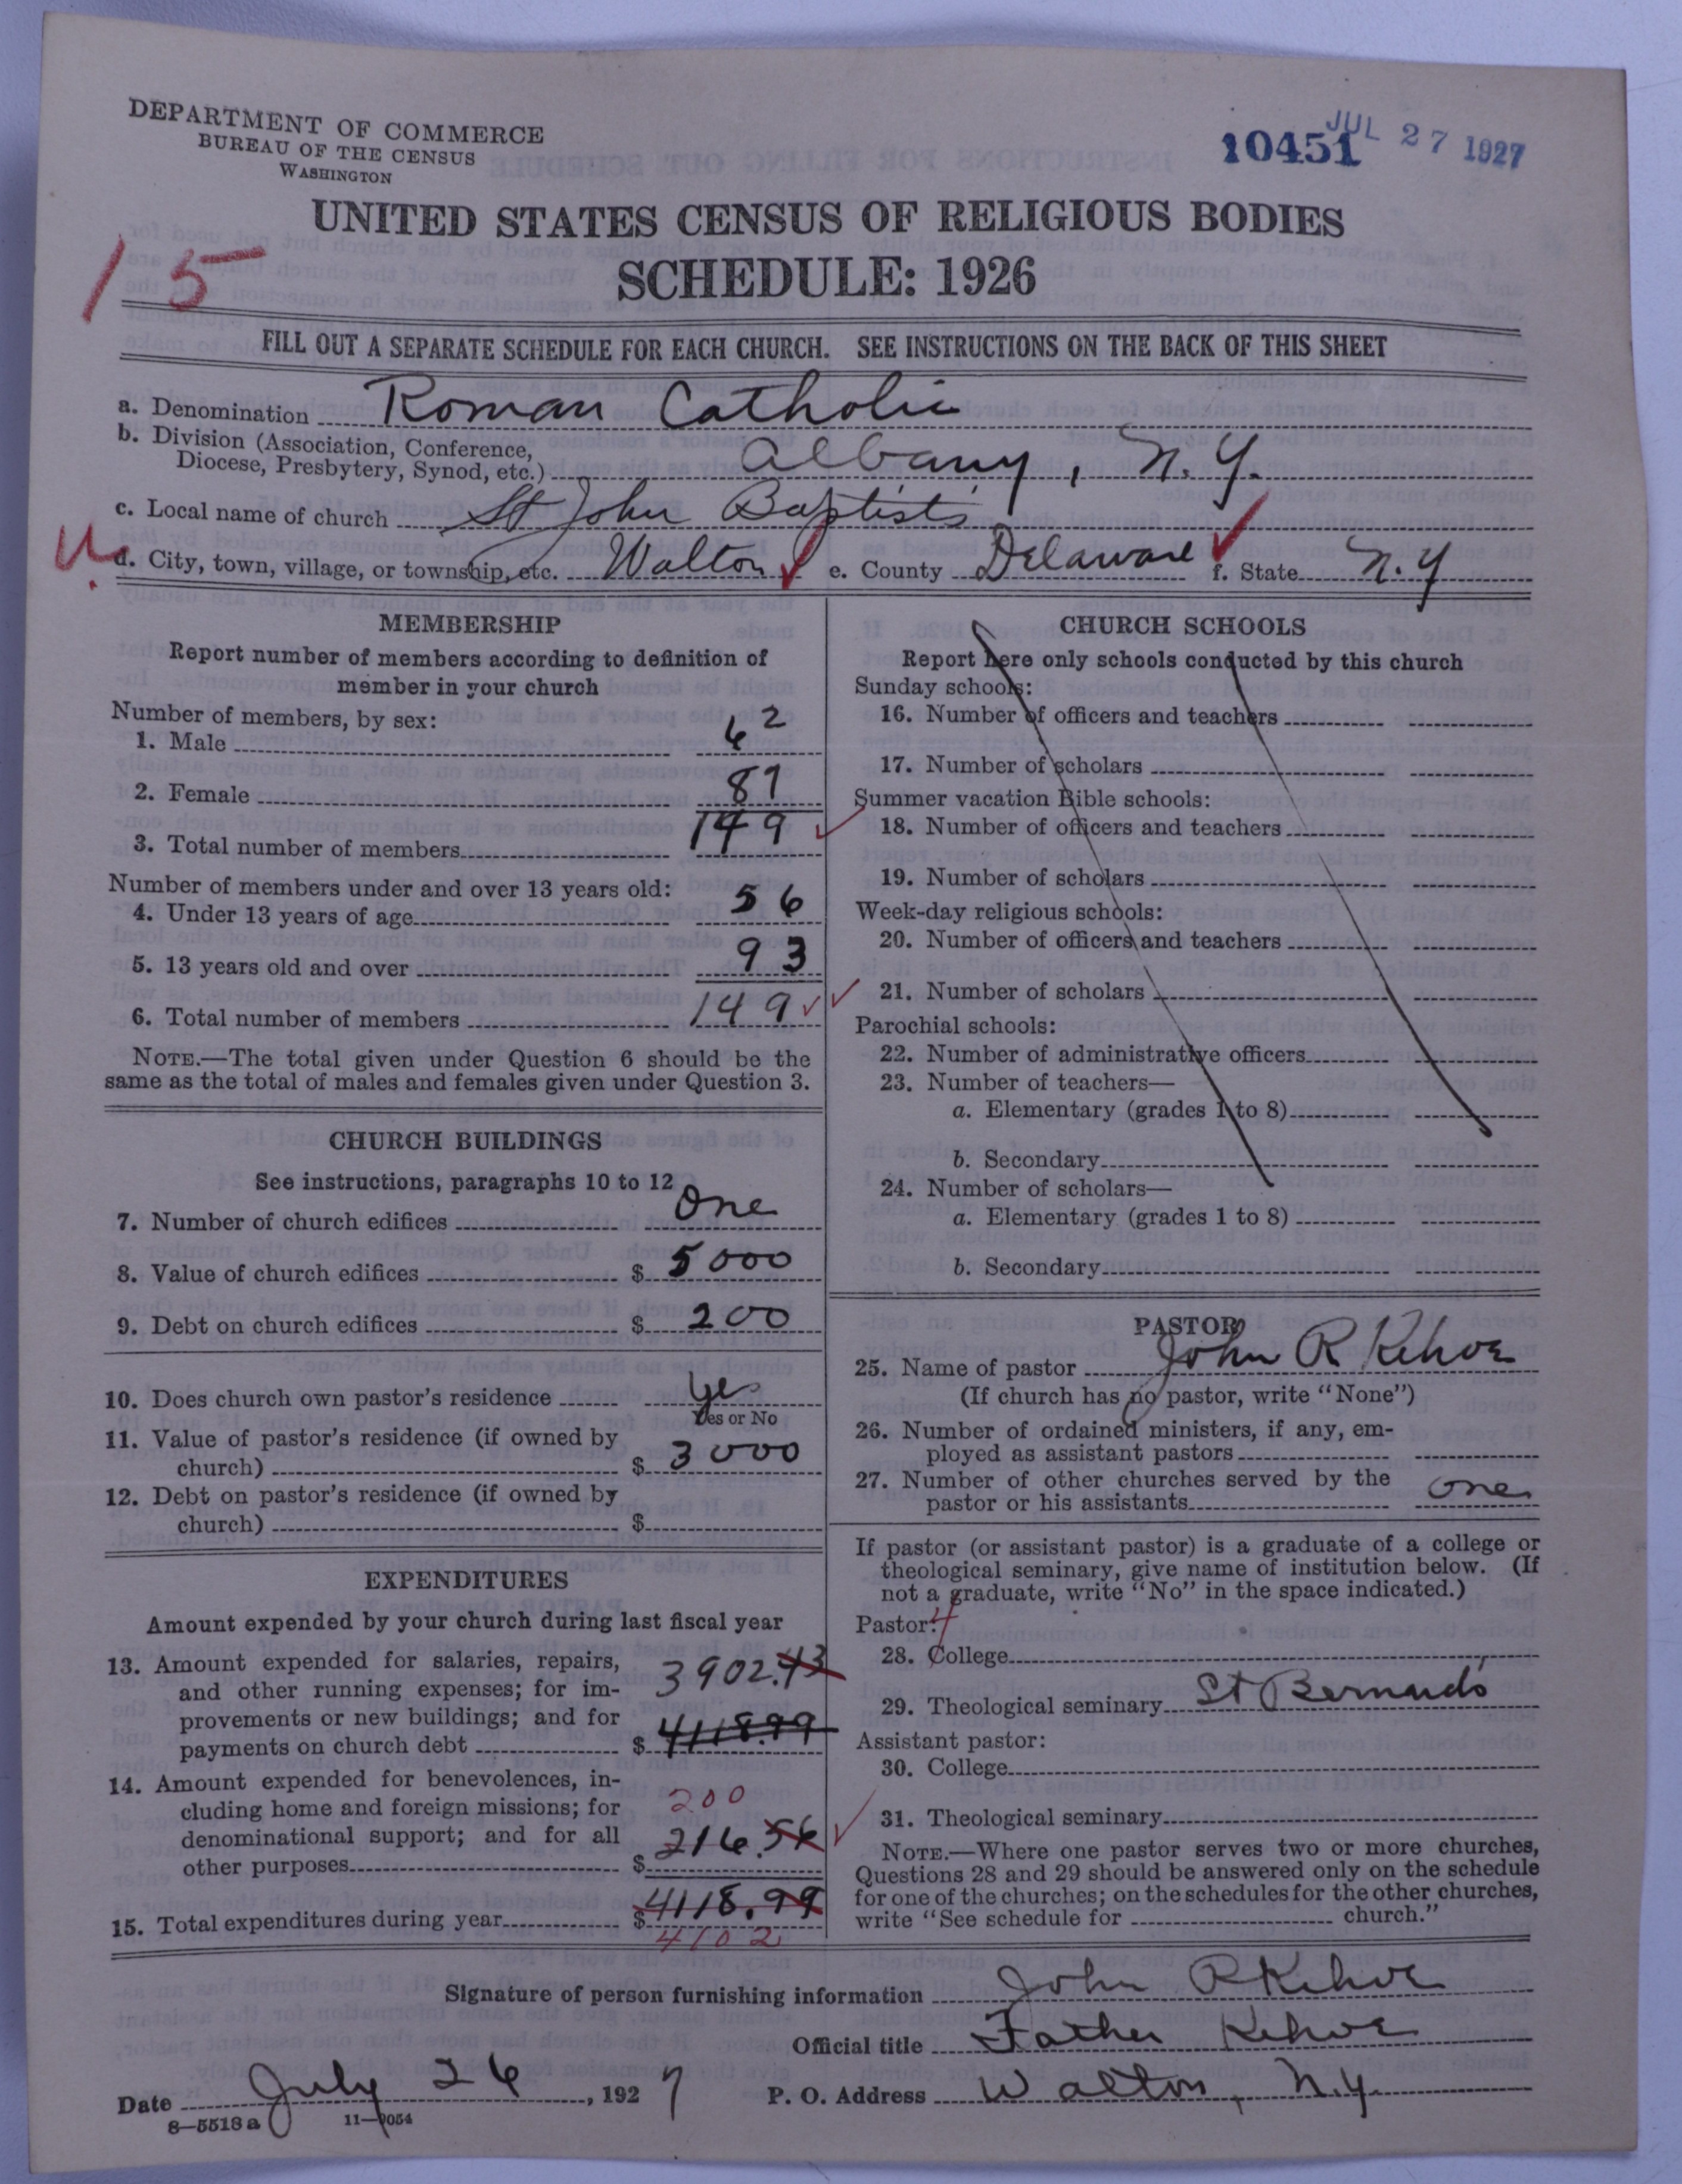 DEPARTMENT OF COMMERCE
BUREAU OF THE CENSUS
WASHINGTON
10451
JUL 27 1927
UNITED STATES CENSUS OF RELIGIOUS BODIES
SCHEDULE: 1926
15
FILL OUT A SEPARATE SCHEDULE FOR EACH CHURCH. SEE INSTRUCTIONS ON THE BACK OF THIS SHEET
a. Denomination Roman Catholic
b. Division (Association, Conference,
Diocese, Presbytery, Synod, etc.) Albany, N.Y.
c. Local name of church St John Baptist's
d. City, town, village, or township, etc. Walton e. County Delaware f. State N.Y
MEMBERSHIP
Report number of members according to definition of
member in your church
Number of members, by sex:
1. Male 62
2. Female 87
3. Total number of members 149
Number of members under and over 13 years old:
4. Under 13 years of age 56
5. 13 years old and over 93
6. Total number of members 149
NOTE.—The total given under Question 6 should be the
same as the total of males and females given under Question 3.
CHURCH BUILDINGS
See instructions, paragraphs 10 to 12
7. Number of church edifices One
8. Value of church edifices $ 5000
9. Debt on church edifices $ 200
10. Does church own pastor's residence Yes
Yes or No
11. Value of pastor's residence (if owned by
church) $ 3000
12. Debt on pastor's residence (if owned by
church) $
EXPENDITURES
Amount expended by your church during last fiscal year
13. Amount expended for salaries, repairs,
and other running expenses; for im-
provements or new buildings; and for
payments on church debt $
3902.43
4118.99
14. Amount expended for benevolences, in-
cluding home and foreign missions; for
denominational support; and for all
other purposes $
200
216.56
15. Total expenditures during year $ 4118.99
4102
CHURCH SCHOOLS
Report here only schools conducted by this church
Sunday schools:
16. Number of officers and teachers
17. Number of scholars
Summer vacation Bible schools:
18. Number of officers and teachers
19. Number of scholars
Week-day religious schools:
20. Number of officers and teachers
21. Number of scholars
Parochial schools:
22. Number of administrative officers
23. Number of teachers—
a. Elementary (grades 1 to 8)
b. Secondary
24. Number of scholars—
a. Elementary (grades 1 to 8)
b. Secondary
PASTOR
25. Name of pastor John R Kehoe
(If church has no pastor, write "None")
26. Number of ordained ministers, if any, em-
ployed as assistant pastors
27. Number of other churches served by the
pastor or his assistants one
If pastor (or assistant pastor) is a graduate of a college or
theological seminary, give name of institution below. (If
not a graduate, write "No" in the space indicated.)
Pastor: 4
28. College
29. Theological seminary St Bernard's
Assistant pastor:
30. College
31. Theological seminary
NOTE.—Where one pastor serves two or more churches,
Questions 28 and 29 should be answered only on the schedule
for one of the churches; on the schedules for the other churches,
write "See schedule for church."
Signature of person furnishing information John R Kehoe
Official title Father Kehoe
Date July 26, 1927 P. O. Address Walton, N.Y.
8—5518 a 11—9054